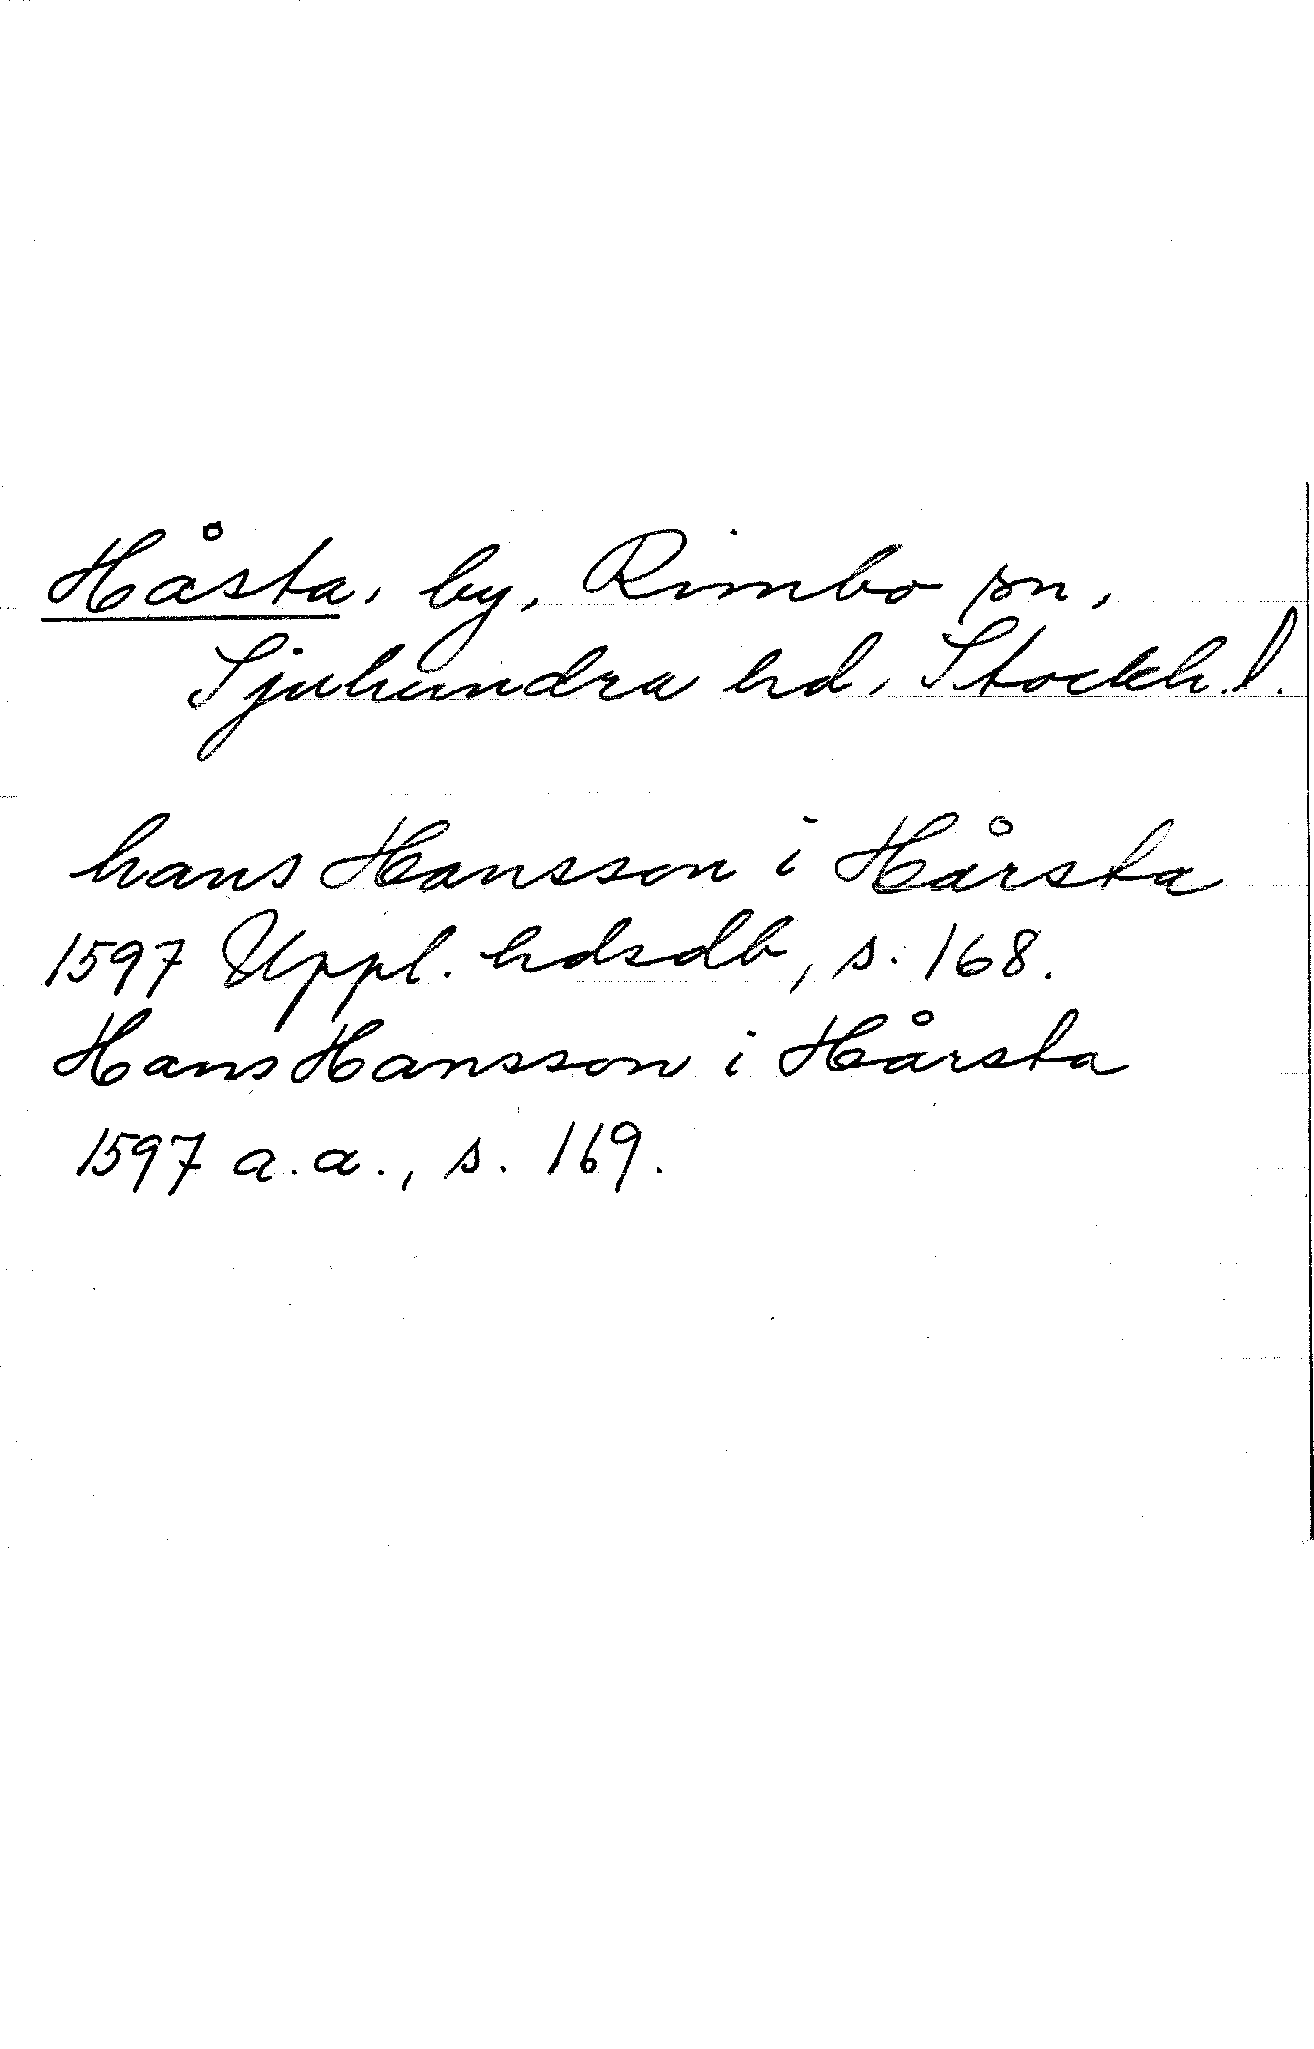 Håsta, by, Rimbo sn,
Sjuhundra hd, Stockh.l.
hans Hansson i Hårsta
1597 Uppl. hdsdb, s. 168.
Hans Hansson i Hårsta
1597 a.a., s. 169.